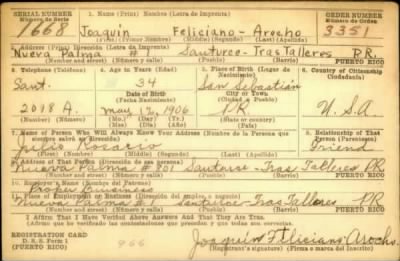 SERIAL NUMBER
Número de Serie
1. Name (Print) Nombre (Letra de Imprenta)
ORDER NUMBER
Número de Orden
1668 Joaquin Feliciano - Arocho 3351
(First) (Primero) (Middle) (Segundo) (Last) (Apellido)
2. Address (Print) Dirección (Letra de Imprenta)
Nueva Palma #1 Santurce - Tras Talleres P.R.
(Number and street) (Número y calle) (Town) (Pueblo) PUERTO RICO
3. Telephone (Teléfono)
4. Age in Years (Edad)
5. Place of Birth (Lugar de Nacimiento)
6. Country of Citizenship
Ciudadanía
Sant. 34 San Sebastián
Date of Birth
(Fecha Nacimiento)
City or Town
(Ciudad o Pueblo)
2018 A. May 12, 1906 P.R. U.S.A.
(Mo.) (Day) (Yr.)
(Mes) (Día) (Año)
(State or country)
7. Name of Person Who Will Always Know Your Address (Nombre de la Persona que
siempre sabrá su dirección)
8. Relationship of That
Person (Parentesco)
Julio Rosario Friend
(First) (Primero) (Middle) (Segundo) (Last) (Apellido)
9. Address of That Person (Dirección de esa persona)
Nueva Palma # 801 Santurce - Tras Talleres P.R.
(Number and street) (Número y calle) (Town) (Pueblo) PUERTO RICO
10. Employer's Name (Nombre del Patrono)
11. Place of Employment or Business (Dirección del empleo, o negocio)
Nueva Palma #1 Santurce - Tras Talleres P.R.
(Number and street) (Número y calle) (Town) (Pueblo) PUERTO RICO
I Affirm That I Have Verified Above Answers And That They Are True.
Afirmo que he verificado las contestaciones que preceden y que todas son correctas.
REGISTRATION CARD
D. S. S. Form 1
(Rev.) PUERTO RICO
966
Joaquin Feliciano Arocho
(Registrant's signature) (Firma o marca del Inscrito)